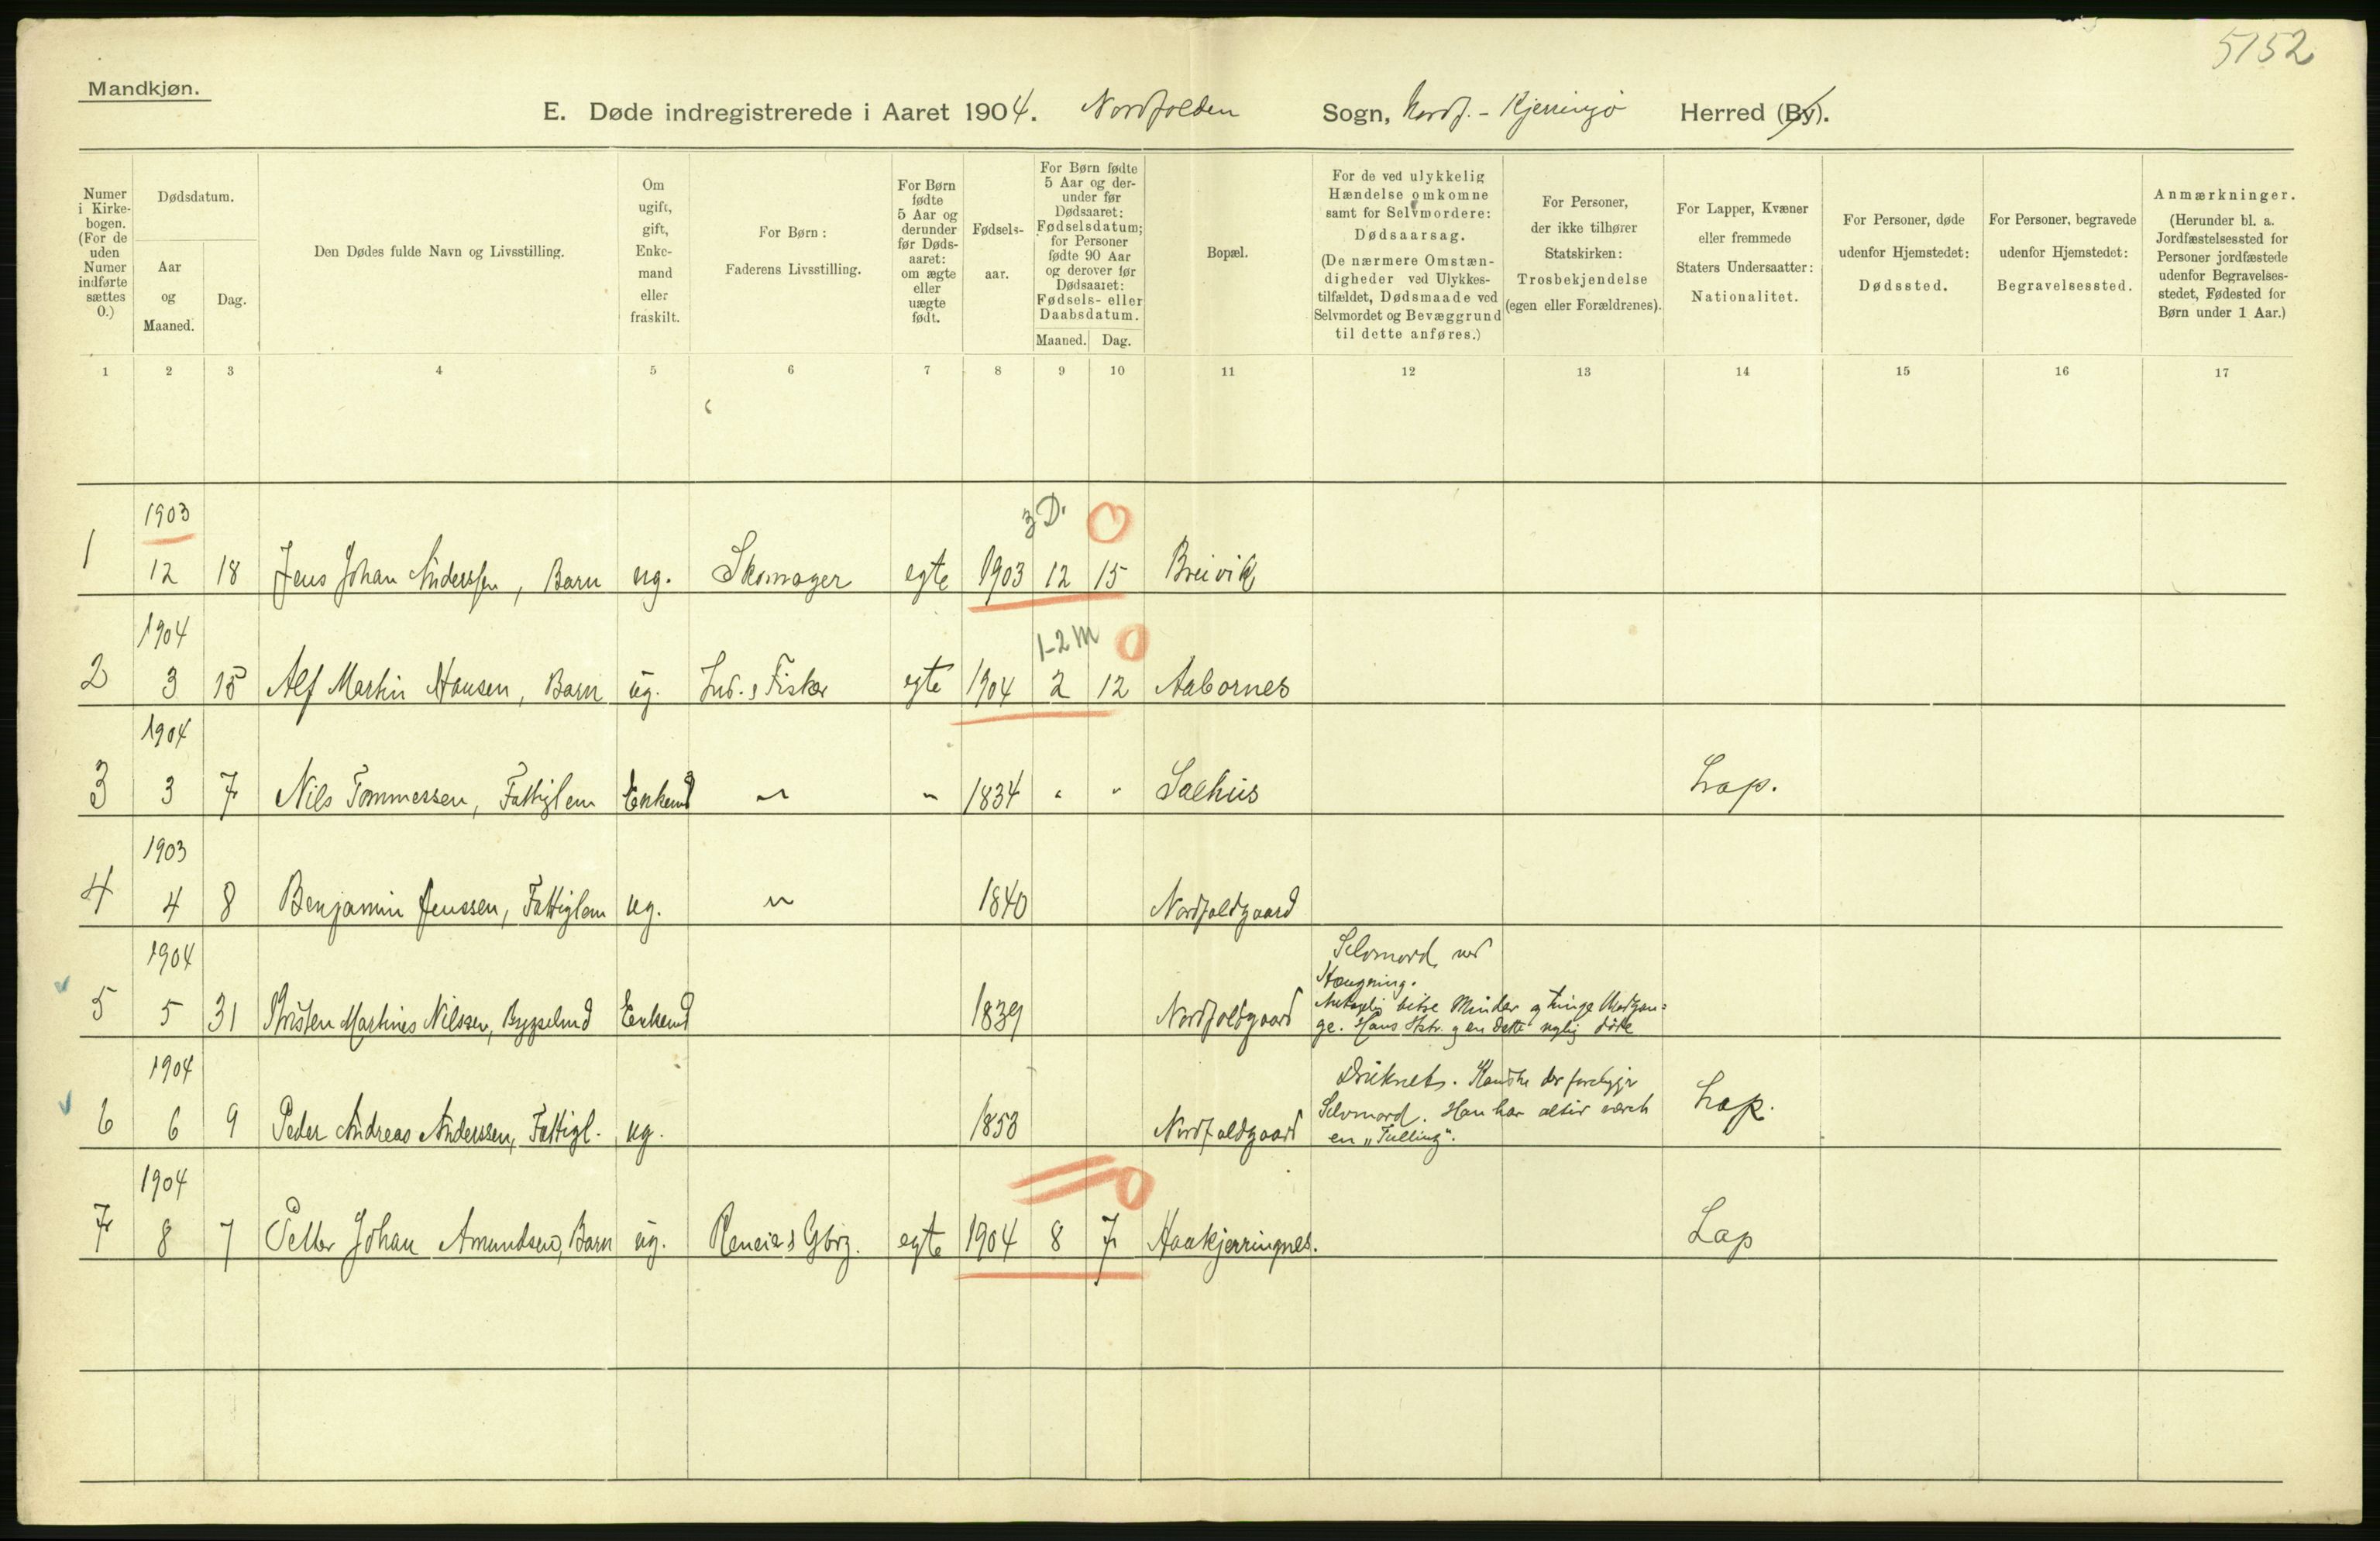 5152
Mandkjøn.
E. Døde indregistrerede i Aaret 1904. Nordfolden Sogn, Nordf. - Kjerringö Herred (By).
Numer i Kirke-bogen. (For de uden Numer indførte sættes 0.)
Dødsdatum.
Aar og Maaned.
Dag.
Den Dødes fulde Navn og Livsstilling.
Om ugift, gift, Enke-mand eller fraskilt.
For Børn: Faderens Livsstilling.
For Børn fødte 5 Aar og derunder før Døds-aaret: om ægte eller uægte født.
Fødsels-aar.
For Børn fødte 5 Aar og der-under før Dødsaaret: Fødselsdatum; for Personer fødte 90 Aar og derover før Dødsaaret: Fødsels- eller Daabsdatum.
Maaned. Dag.
Bopæl.
For de ved ulykkelig Hændelse omkomne samt for Selvmordere: Dødsaarsag. (De nærmere Omstæn-digheder ved Ulykkes-tilfældet, Dødsmaade ved Selvmordet og Bevæggrund til dette anføres.)
For Personer, der ikke tilhører Statskirken: Trosbekjendelse (egen eller Forældrenes).
For Lapper, Kvæner eller fremmede Staters Undersaatter: Nationalitet.
For Personer, døde udenfor Hjemstedet: Dødssted.
For Personer, begravede udenfor Hjemstedet: Begravelsessted.
Anmærkninger. (Herunder bl. a. Jordfæstelsessted for Personer jordfæstede udenfor Begravelses-stedet, Fødested for Børn under 1 Aar.)
1 2 3 4 5 6 7 8 9 10 11 12 13 14 15 16 17
1903 3 D. 0
1 12 18 Jens Johan Anderssen, Barn ug. Skomager egte 1903 12 15 Breivik
1904 1-2 m 0
2 3 15 Alf Martin Hansen, Barn ug. Ind. s Fisker egte 1904 2 12 Aabornes
1904
3 3 7 Nils Tommessen, Fattiglem Enkemd " " 1834 " " Sælhus Lap.
1903
4 4 8 Benjamin Jenssen, Fattiglem ug. " 1840 Nordfoldgaard
1904 Selvmord, ved
Hængning.
5 5 31 Kristen Martines Nilssen, Bygselmd Enkemd 1839 Nordfoldgaard Minder og tunge Modgan=
ge. Hans Hstr. og en Datter nylig döde
1904 Druknet. Kanske der foreligger
6 6 9 Peder Andreas Anderssen, Fattigl. ug. 1853 Nordfoldgaard Selvmord. Han har altid været Lap.
en "Tulling".
1904 0
7 8 7 Petter Johan Amundsen, Barn ug. Reneier s Gbrg. egte 1904 8 7 Haakjerringnes. Lap